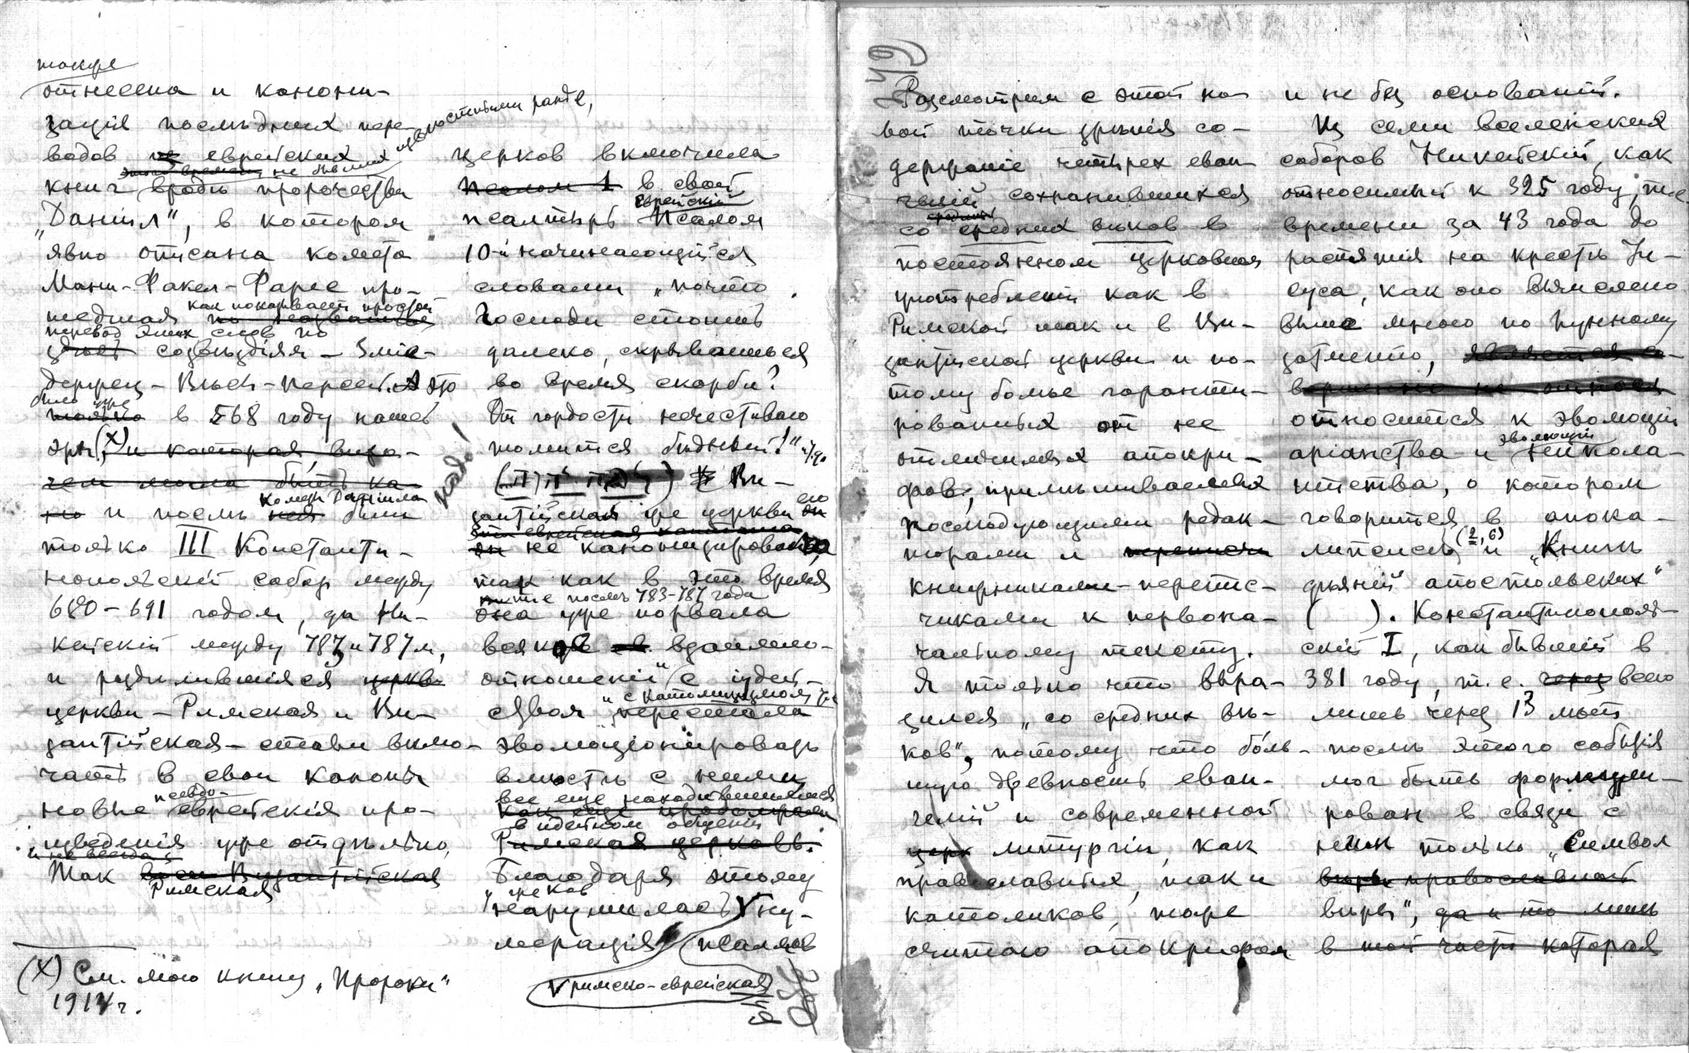 также
отнесена и канони-
зація последних пере-
водов с еврейских
книг, вроде пророчества
„Даніил“, в котором
явно описана комета
Мани-Факел-Фарес про-
шедшая как показывает простой
перевод этих слов по
созвездіям — Зміе-
держец — Весы — Персей. А это
было уже
в 568 году нашей
эры (X) и которая види-
чем могла быть ка-
но и после книги Даніила были
только III Константи-
нопольскій собор между
680–691 годом, да Ни-
кейскій между 783 и 787 м,
и разделившіяся церкви
церкви — Римская и Ви-
зантійская — стали вклю-
чать в свои каноны
новые псевдо-еврейскія про-
изведенія уже отдельно,
и не всегда
Так вся Византійская
Римская
(X) См. мою книгу „Пророки“
1914 г.
церков включила
Псалом 1 в свой
псалтырь еврейскій Псалом
10-й начинающійся
словами „почто
Господи стоишь
далеко, скрываешься
во время скорби?
От гордости нечестиваго
томится бедный!“ и пр.
Ви-
зантійская же церковь его
не канонизировала
так как в это время
т.е. после 783–787 года
она уже порвала
всякія взаимно-
отношенія с іудей-
ством „с католицизмом и
перестала
эволюціонировать
вместе с ними
все еще находившимися
в идейном общеніи
Римская церковь.
Благодаря этому
у греков
нарушилась V ну-
мерація псалмов
V римско-еврейская
49
Разсмотрим с этой но-
вой точки зренія со-
держаніе четырех еван-
гелій сохранившихся
со средних веков в
постоянном церковном
употребленіи как в
Римской так и в Ви-
зантійской церкви и по-
тому более гаранти-
рованных от не
отличимых апокри-
фов, примешиваемых
последующими редак-
торами и переписчи
книжниками-перепис-
чиками к первона-
чальному тексту.
Я только что выра-
зился „со средних ве-
ков“, потому что боль-
шую древность еван-
гелій и современной
церк литургіи, как
православных, так и
католиков, тоже
считаю апокрифом
и не без основаній.
Из семи вселенских
соборов Никейскій, как
относимый к 325 году, т.е.
времени за 43 года до
распятія на кресте Іи-
суса, как оно вычислено
выше мною по лунному
затменію,
относится к эволюціи
аріанства и эволюціи николаи-
итства, о котором
говорится в апока-
липсисе (2, 6) и „Книге
деяній апостольских“
( ). Константинополь-
скій I, как бывшій в
381 году, т.е. через всего
лишь через 13 лет
после этого событія
мог быть формули-
рован в связи с
ним только „Символ
веры православной
веры“, да и то лишь
в той части которая